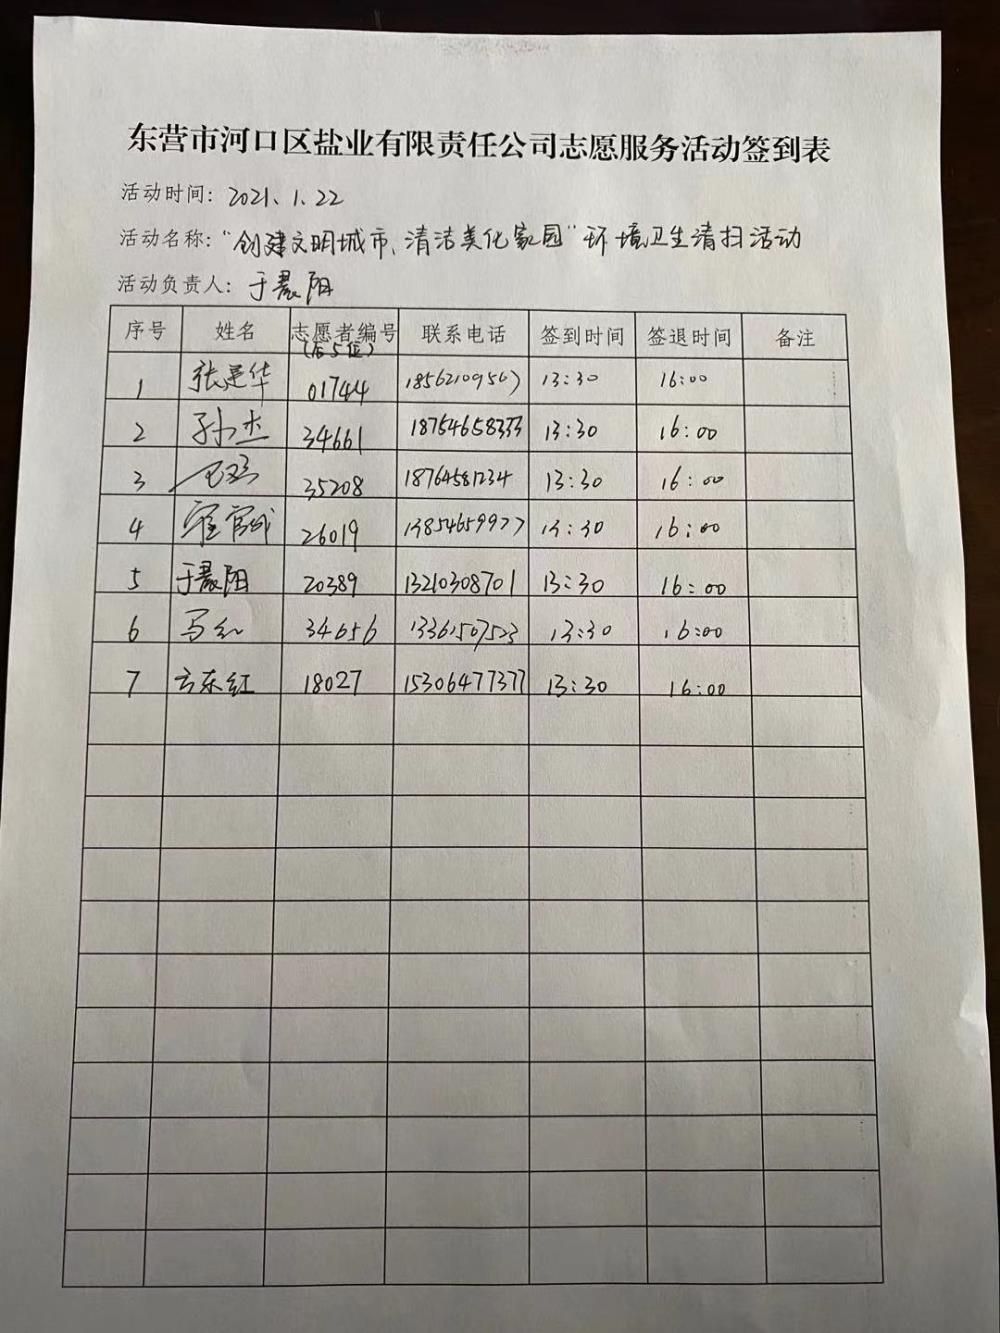 东营市河口区盐业有限责任公司志愿服务活动签到表
活动时间：2021、1.22
活动名称："创建文明城市、清洁美化家园"环境卫生清扫活动
活动负责人：于晨阳
序号 姓名 志愿者编号(后5位) 联系电话 签到时间 签退时间 备注
1 张建华 01744 18562109567 13:30 16:00
2 孙杰 34661 18754658333 13:30 16:00
3 35208 18764581234 13:30 16:00
4 26019 13854659977 13:30 16:00
5 于晨阳 20389 13210308701 13:30 16:00
6 马红 34656 13361507523 13:30 16:00
7 方东红 18027 15306477377 13:30 16:00